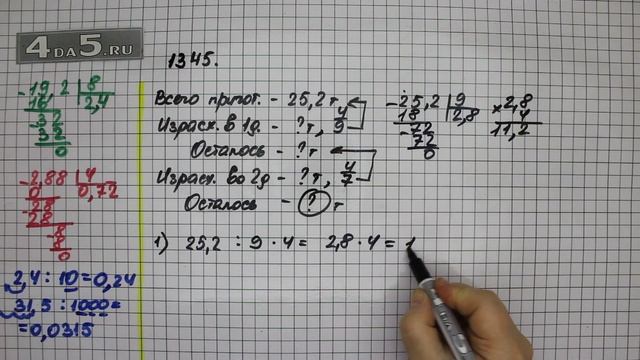 4DA5.RU
1345.
Всего пригот. - 25,2 т
Израсх. в 1д. - ? т, 4/9
Осталось - ? т
Израсх. во 2д - ? т, 4/7
Осталось - ? т
1) 25,2 : 9 · 4 = 2,8 · 4 = 1
-25,2 | 9
18 | 2,8
-72
72
0
×2,8
4
11,2
-19,2 | 8
16 | 2,4
-32
32
0
-2,88 | 4
0 | 0,72
-28
28
-8
8
0
2,4 : 10 = 0,24
31,5 : 1000 =
= 0,0315